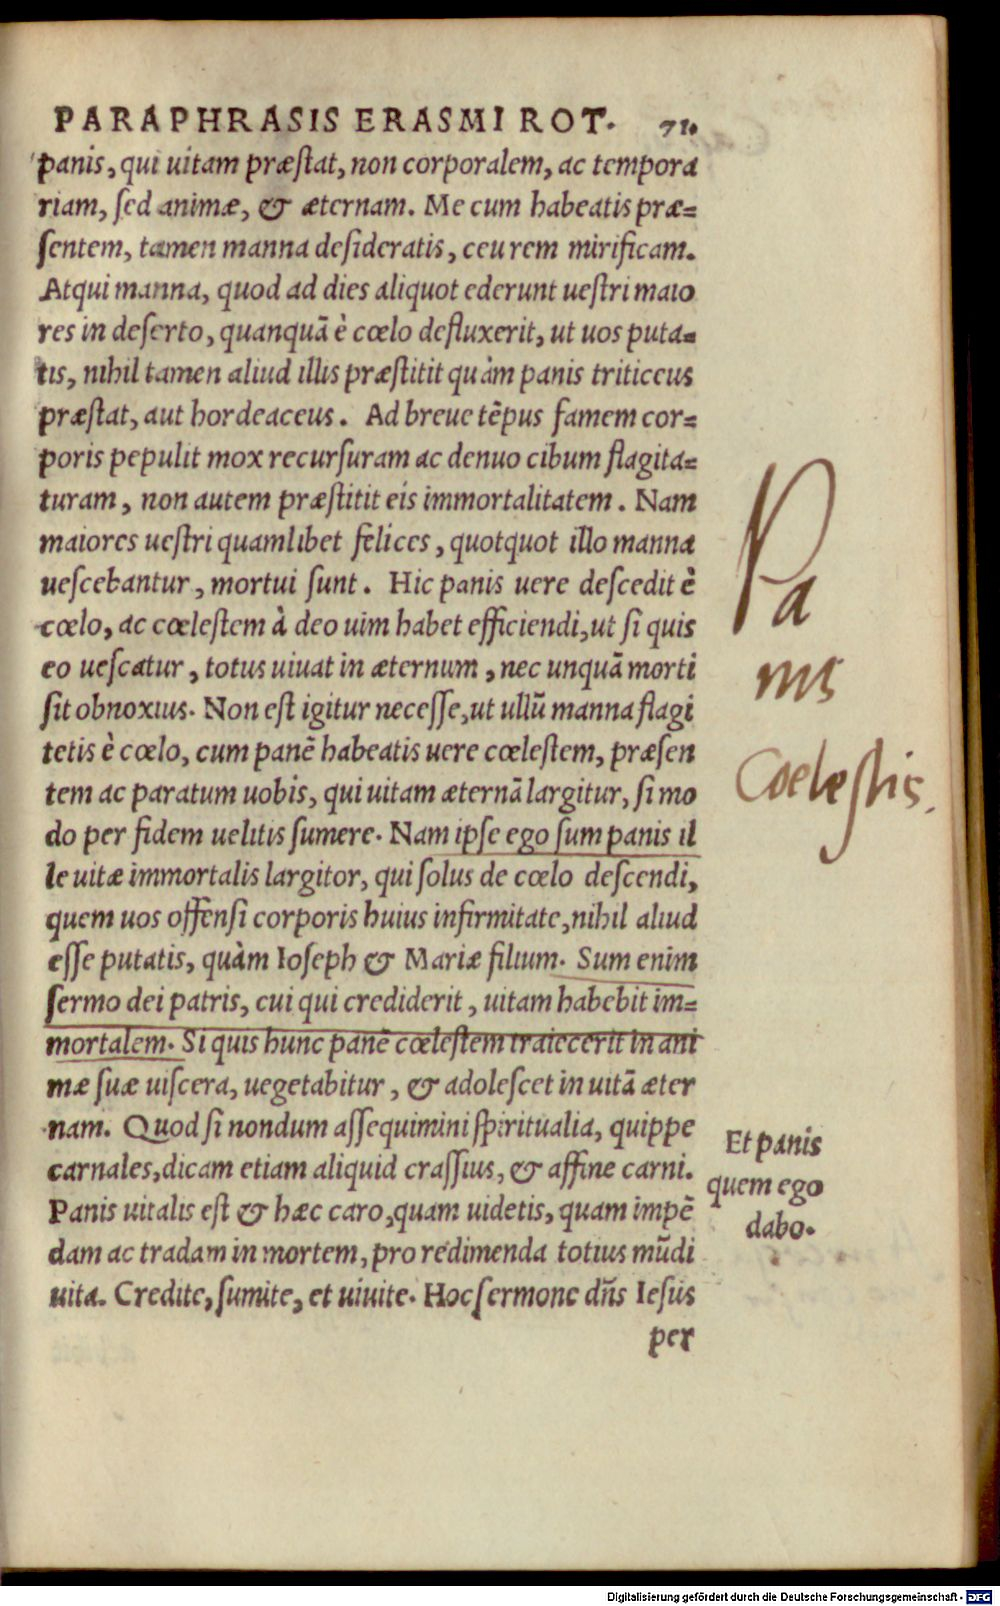 PARAPHRASIS ERASMI ROT. 71.
panis, qui uitam præſtat, non corporalem, ac tempora
riam, ſed animæ, & æternam. Me cum habeatis præ=
ſentem, tamen manna deſideratis, ceu rem mirificam.
Atqui manna, quod ad dies aliquot ederunt ueſtri maio
res in deſerto, quanquā è cœlo defluxerit, ut uos puta=
tis, nihil tamen aliud illis præſtitit quàm panis triticeus
præſtat, aut hordeaceus. Ad breue tēpus famem cor=
poris pepulit mox recurſuram ac denuo cibum flagita=
turam, non autem præſtitit eis immortalitatem. Nam
maiores ueſtri quamlibet felices, quotquot illo manna
ueſcebantur, mortui ſunt. Hic panis uere deſcedit è
cœlo, ac cœleſtem à deo uim habet efficiendi, ut ſi quis
eo ueſcatur, totus uiuat in æternum, nec unquā morti
ſit obnoxius. Non eſt igitur neceſſe, ut ullū manna flagi
tetis è cœlo, cum panē habeatis uere cœleſtem, præſen
tem ac paratum uobis, qui uitam æternā largitur, ſi mo
do per fidem uelitis ſumere. Nam ipſe ego ſum panis il
le uitæ immortalis largitor, qui ſolus de cœlo deſcendi,
quem uos offenſi corporis huius infirmitate, nihil aliud
eſſe putatis, quàm Ioſeph & Mariæ filium. Sum enim
ſermo dei patris, cui qui crediderit, uitam habebit im=
mortalem. Si quis hunc panē cœleſtem traiecerit in ani
mæ ſuæ uiſcera, uegetabitur, & adoleſcet in uitā æter
nam. Quod ſi nondum aſſequimini ſpiritualia, quippe
carnales, dicam etiam aliquid craſſius, & affine carni.
Panis uitalis eſt & hæc caro, quam uidetis, quam impē
dam ac tradam in mortem, pro redimenda totius mūdi
uita. Credite, ſumite, et uiuite. Hoc ſermone dn̄s Ieſus
per
Pa
nis
Coelestis.
Et panis
quem ego
dabo.
Digitalisierung gefördert durch die Deutsche Forschungsgemeinschaft - DFG